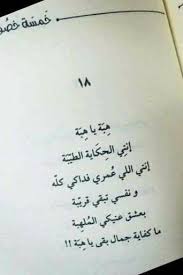 خمسة خصو
١٨
هِبَة يا هِبَة
إنتي الحكاية الطيّبة
إنتي اللي عُمري فداكي كلّه
و نفسي تبقي قريّبة
بعشق عنيكي المُلهِبة
ما كفاية جمال بقى يا هِبَة !!